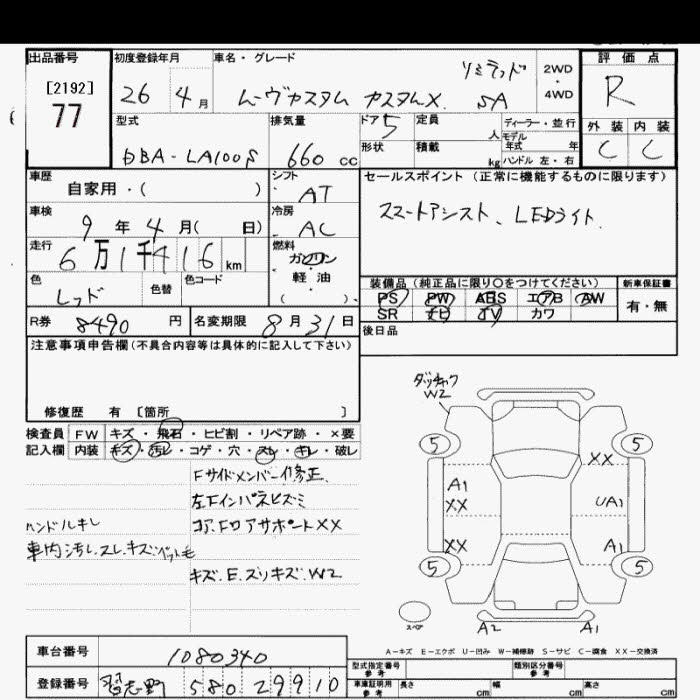 出品番号 初度登録年月 車名・グレード 評価点
[2192]
77
26 4月 ムーヴカスタム カスタムX リミテッド SA 2WD・4WD R
型式 排気量 ドア 5 定員 人 ディーラー・並行 外装 内装
DBA-LA100S 660cc 形状 積載 kg モデル年式 年 ハンドル 左・右 C C
車歴 シフト セールスポイント(正常に機能するものに限ります)
自家用・( ) AT
車検 冷房 スマートアシスト、LEDライト
9年4月( 日) AC
走行 燃料
6万1千416km ガソリン・軽油・( )
色 色替 色コード 装備品(純正品に限り〇をつけてください) 新車保証書
レッド PS PW ABS エアB AW 有・無
SR ナビ TV カワ
R券 8490円 名変期限 8月31日 後日品
注意事項申告欄(不具合内容等は具体的に記入して下さい)
修復歴 有 〔箇所 〕
検査員 FW キズ・飛石・ヒビ割・リペア跡・×要
記入欄 内装 キズ・汚レ・コゲ・穴・スレ・キレ・破レ
Fサイドメンバー修正
左Fインパネヒズミ
ハンドルキレ コア、Fロアサポート XX
車内汚レ.スレ.キズ.ペット毛
キズ.E.スリキズ.W2
ダッチャク
W2
5 5
XX
A1
XX UA1
XX A1
5 5
スペア
A2 A1
A-キズ E-エクボ U-凹み W-補修跡 S-サビ C-腐食 XX-交換済
車台番号 1080340
登録番号 習志野 580 2991 0
型式指定番号 参考 類別区分番号 参考
車庫証明用 参考 長さ cm 幅 cm 高さ cm